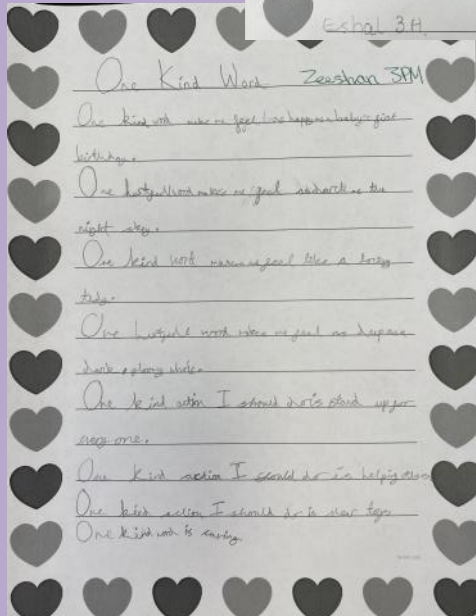 Eshal 3A
One Kind Word Zeeshan 3PM
One kind word make me feel happy baby's first
birthday.
One hurtful word makes me feel as dark as the
night sky.
One kind word makes me feel like a
tedy.
One hurtful word makes me feel as
dark
One kind action I should do is stand up for
every one.
One kind action I should do is helping
One kind action I should do is toys
One kind word is caring.